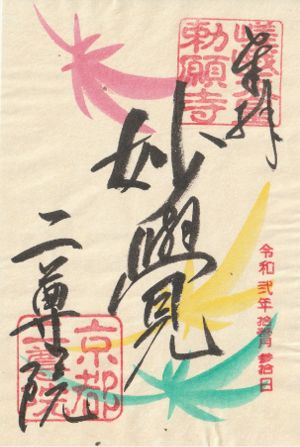 奉拝
嵯峨天皇
勅願寺
妙覺
令和弐年拾壱月参拾日
二尊院
京都
二尊院